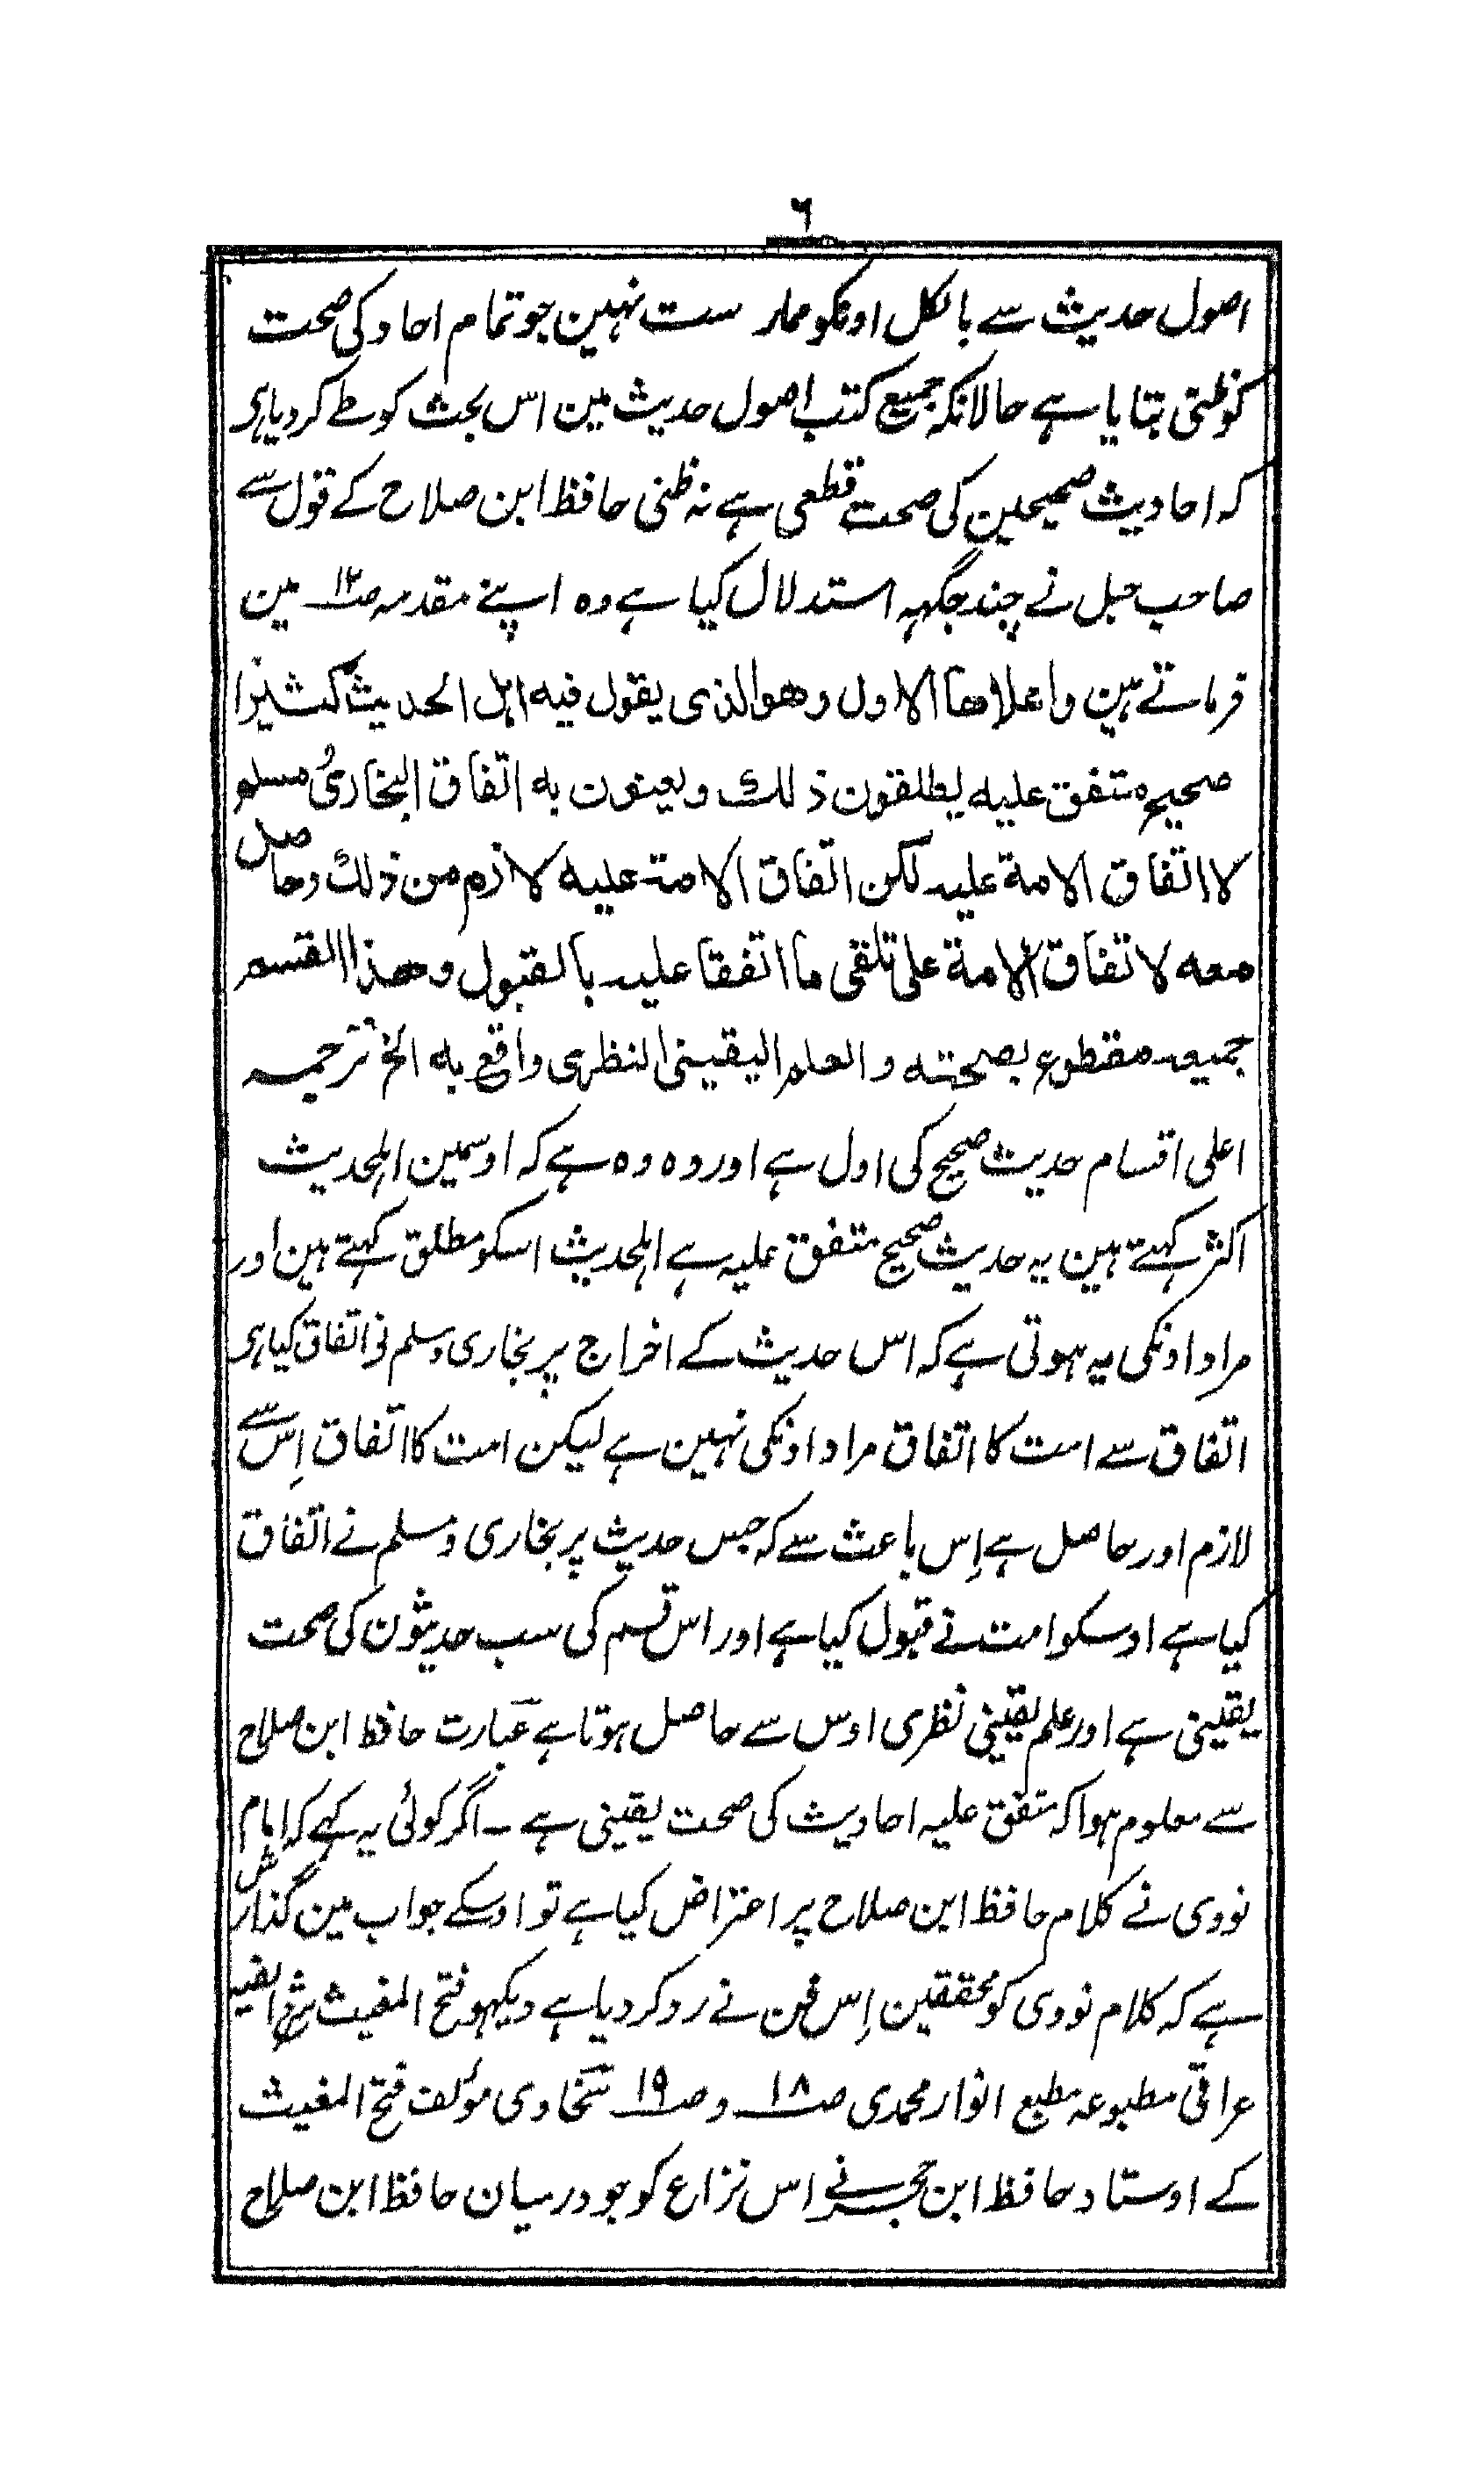 ٦
اصول حدیث سے بالکل اونکو ممار ست نہین جو تمام احاد کی صحت
کو ظنی بتایا ہے حالانکہ جمیع کتب اصول حدیث مین اس بحث کو طے کر دیا ہی
کہ احادیث صحیحین کی صحت قطعی ہے نہ ظنی حافظ ابن صلاح کے قول سے
صاحب حبل نے چند جگہہ استدلال کیا ہے وہ اپنے مقدمہ صـ١٢ مین
فرماتے ہین واعلاھا الاول وھو الذی یقول فیہ اہل الحدیث کثیرا
صحیح متفق علیہ یطلقون ذلک ویعنون بہ اتفاق البخاری و مسلم
لا اتفاق الامة علیہ لکن اتفاق الامة علیہ لازم من ذلک وحاصل
معہ لاتفاق الامة علی تلقی ما اتفقا علیہ بالقبول وھذا القسم
جمیعہ مقطوع بصحتہ والعلم الیقینی النظری واقع بہ الخ ترجمہ
اعلی اقسام حدیث صحیح کی اول ہے اور وہ وہ ہے کہ اوسمین اہلحدیث
اکثر کہتے ہین یہ حدیث صحیح متفق علیہ ہے اہلحدیث اسکو مطلق کہتے ہین اور
مراد اونکی یہ ہوتی ہے کہ اس حدیث کے اخراج پر بخاری و مسلم نی اتفاق کیا ہی
اتفاق سے امت کا اتفاق مراد اونکی نہین ہے لیکن امت کا اتفاق اِس سے
لازم اور حاصل ہے اِس باعث سے کہ جس حدیث پر بخاری و مسلم نے اتفاق
کیا ہے اوسکو امت نے قبول کیا ہے اور اس قسم کی سب حدیثون کی صحت
یقینی ہے اور علم یقینی نظری اوس سے حاصل ہوتا ہے عبارت حافظ ابن صلاح
سے معلوم ہوا کہ متفق علیہ احادیث کی صحت یقینی ہے ۔ اگر کوئی یہ کہے کہ امام
نووی نے کلام حافظ ابن صلاح پر اعتراض کیا ہے تو اوسکے جواب مین گذارش
ہے کہ کلام نووی کو محققین اِس فن نے رد کر دیا ہے دیکہو فتح المغیث شرح الفیہ
عراقی مطبوعہ مطبع انوار محمدی صـ١٨ و صـ١٩ سخاوی مؤلف فتح المغیث
کے اوستاد حافظ ابن حجر نے اس نزاع کو جو درمیان حافظ ابن صلاح